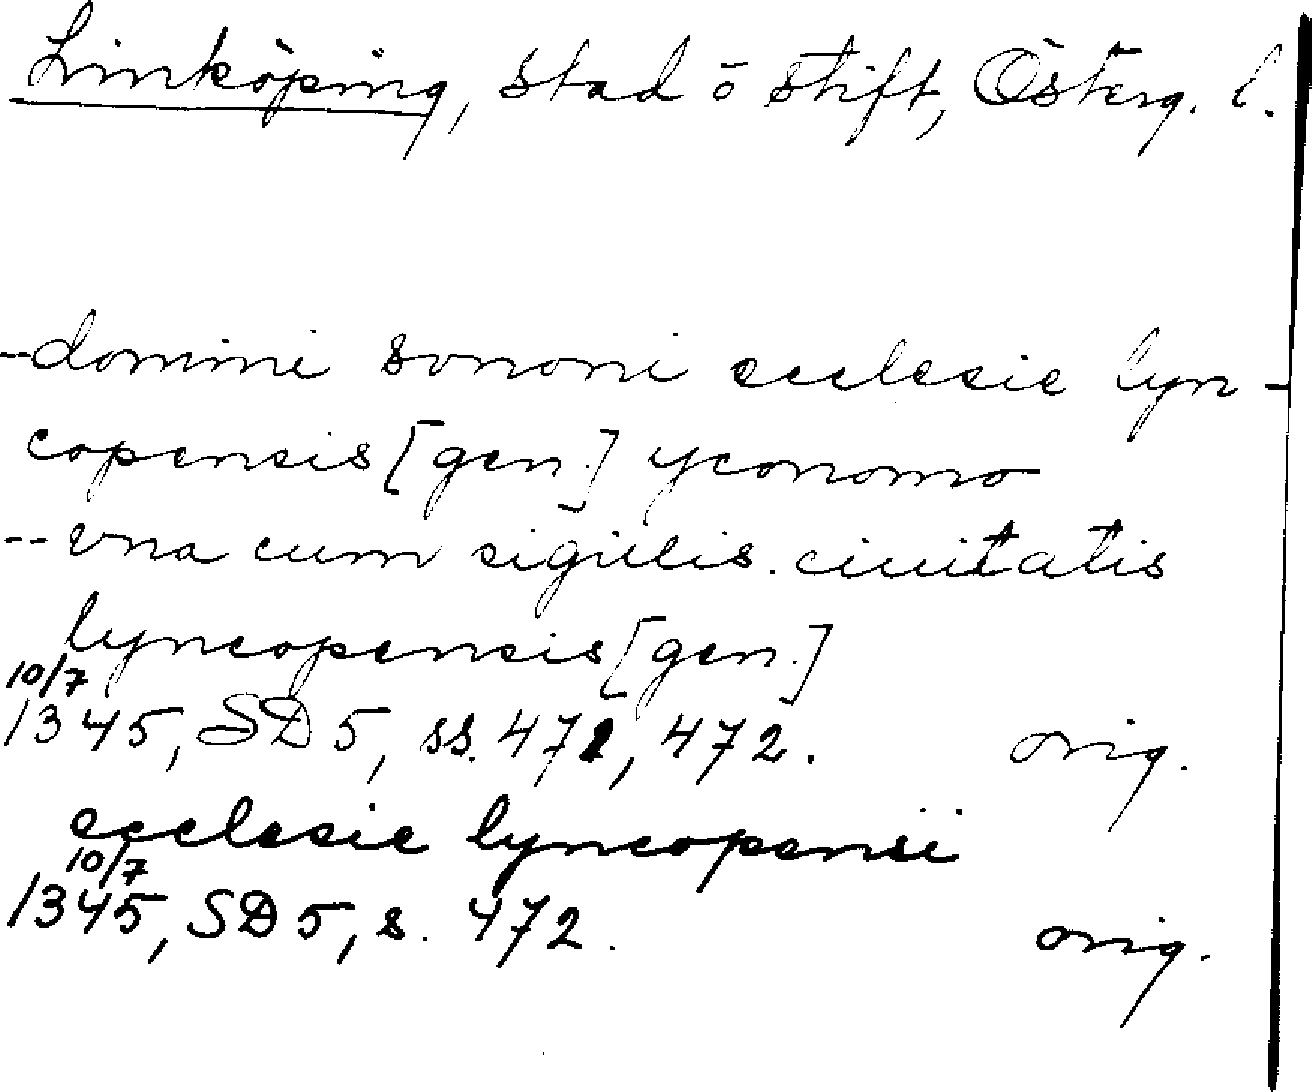 Linköping, stad o stift, Österg. l.
--domini sunoni ecclesie lyn-
copensis [gen.] yconomo
--vna cum sigillis. ciuitatis
lyncopensis [gen.]
10/7
1345, SD 5, ss. 471, 472. orig.
ecclesie lyncopensi
10/7
1345, SD 5, s. 472. orig.